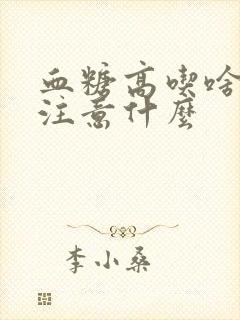 血糖高喫啥
注意什麼
李小桑